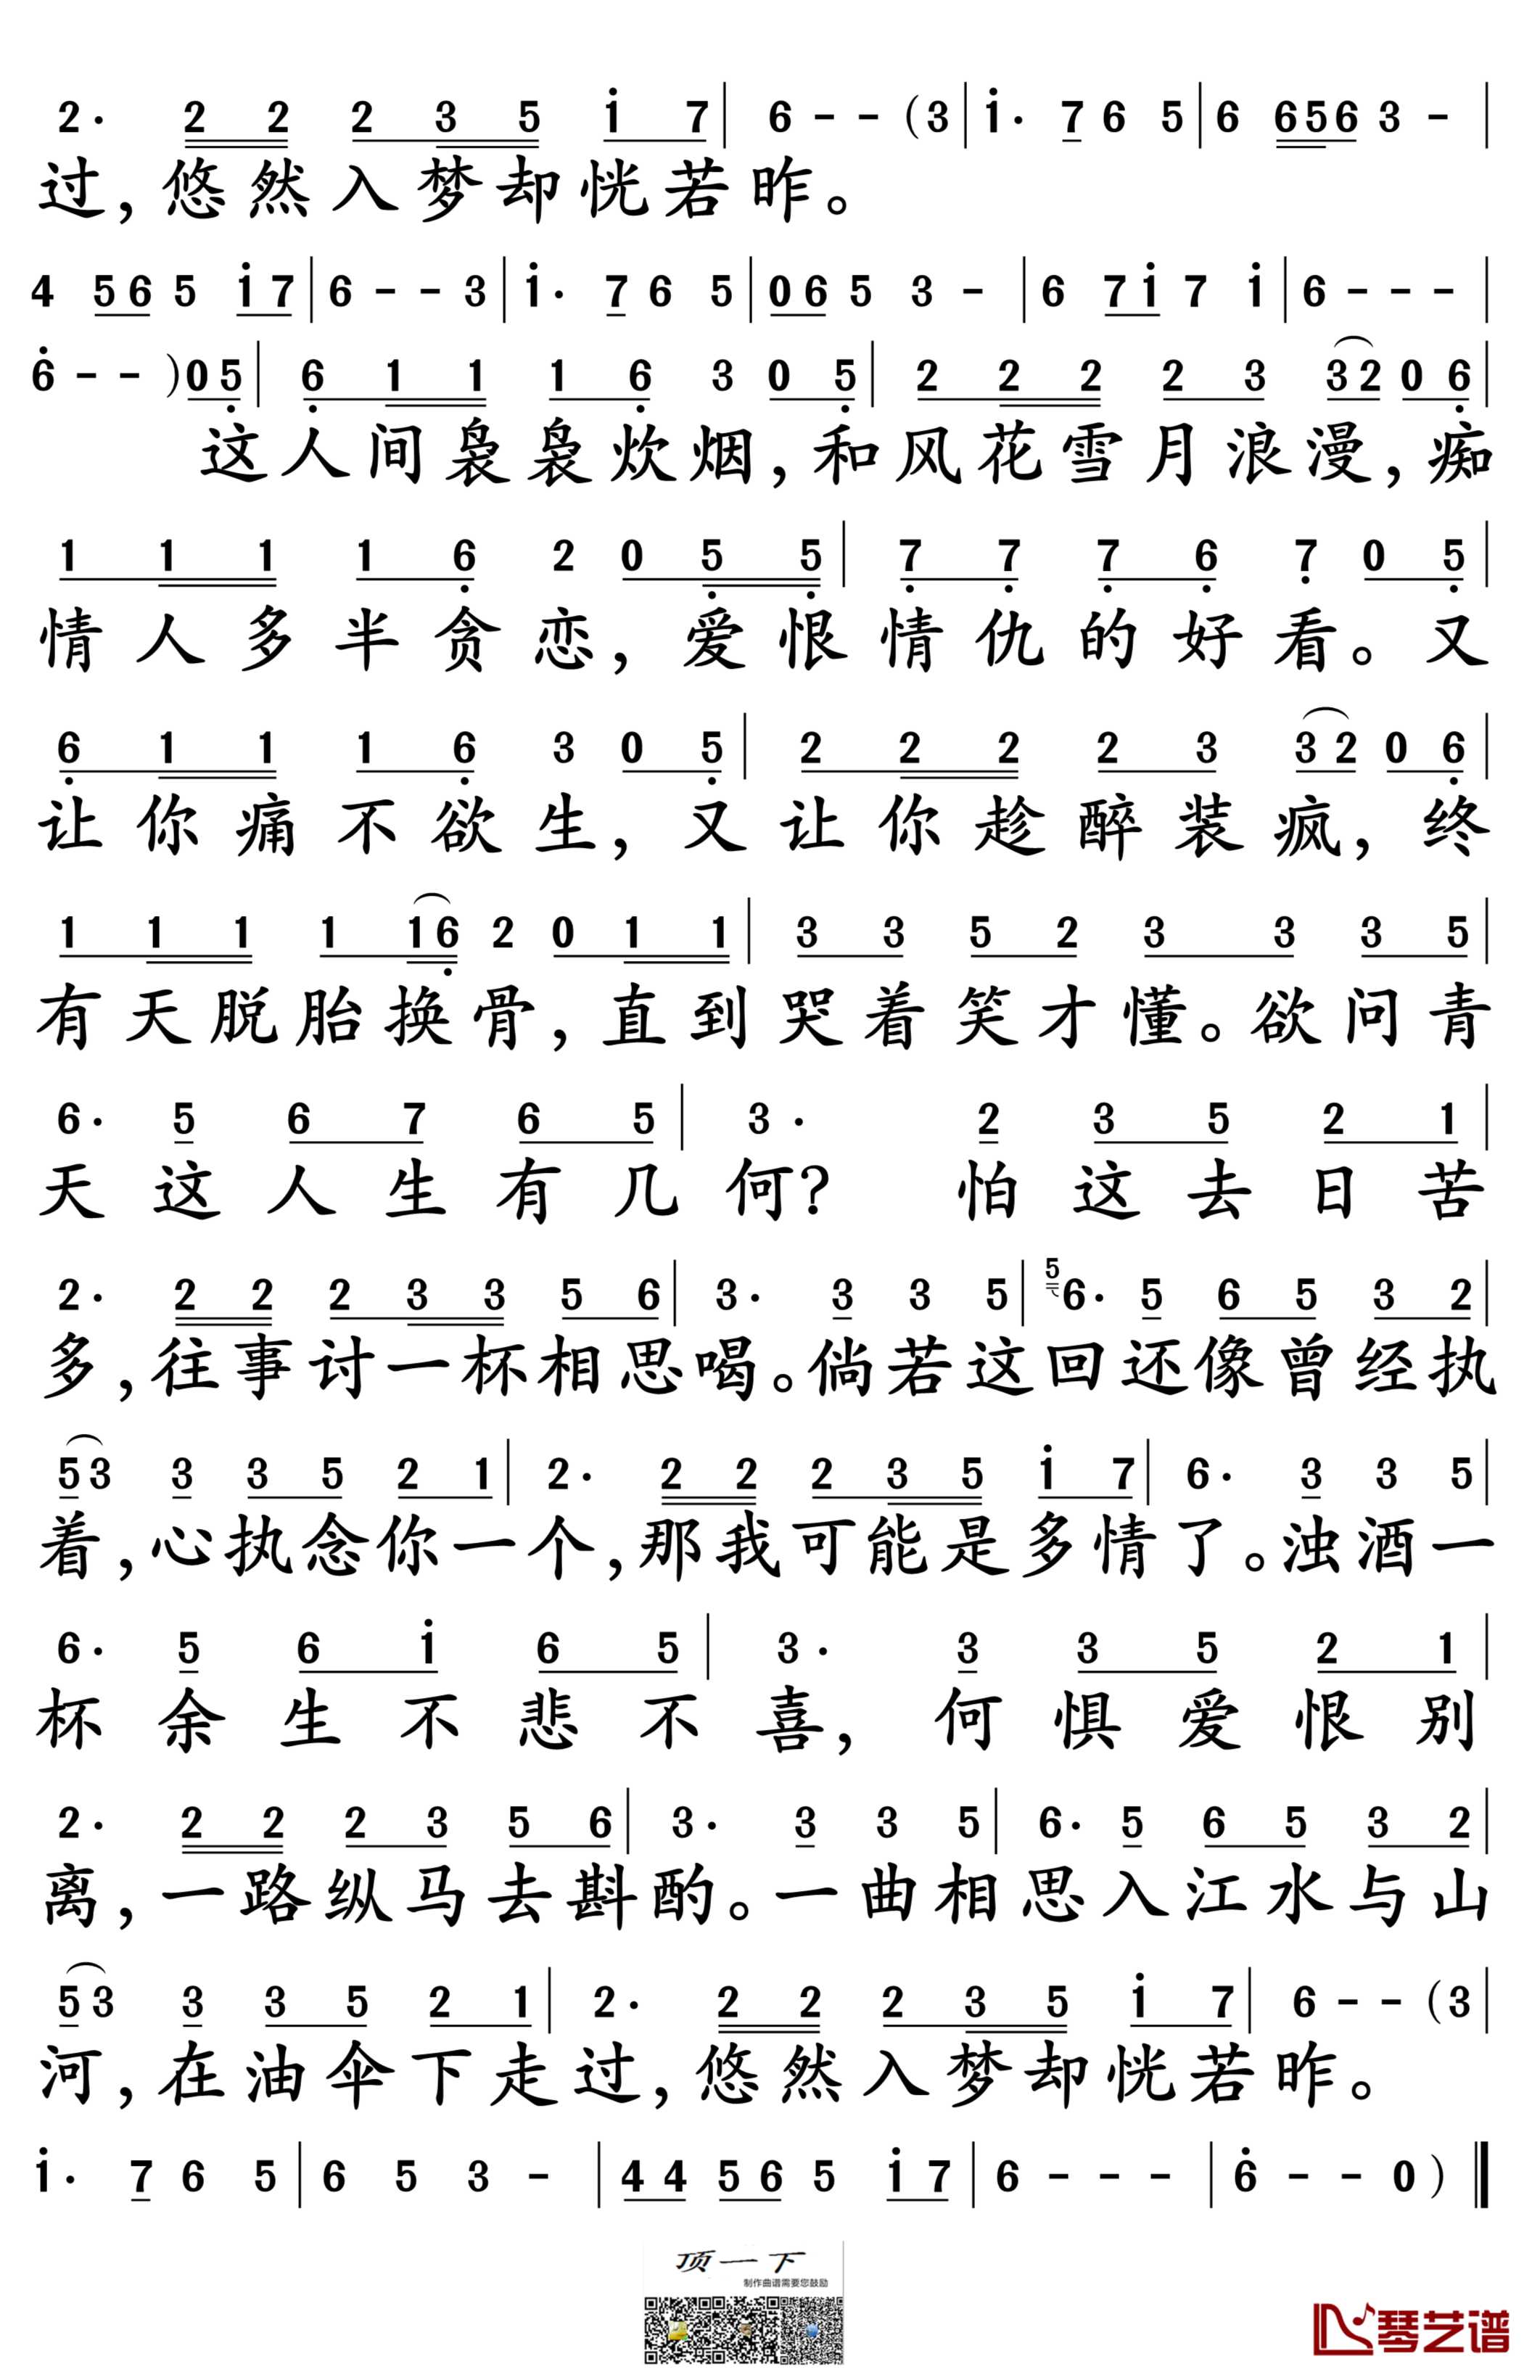 2· 2 2 2 3 5 i 7 | 6 - - (3 | i· 7 6 5 | 6 656 3 - |
过,悠然入梦却恍若昨。
4 56 5 i7 | 6 - - 3 | i· 7 6 5 | 06 5 3 - | 6 7i 7 i | 6 - - - |
6 - - )05 | 6 1 1 1 6 3 0 5 | 2 2 2 2 3 32 0 6 |
这人间袅袅炊烟,和风花雪月浪漫,痴
1 1 1 1 6 2 0 5 5 | 7 7 7 6 7 0 5 |
情人多半贪恋,爱恨情仇的好看。又
6 1 1 1 6 3 0 5 | 2 2 2 2 3 32 0 6 |
让你痛不欲生,又让你趁醉装疯,终
1 1 1 1 16 2 0 1 1 | 3 3 5 2 3 3 3 5 |
有天脱胎换骨,直到哭着笑才懂。欲问青
6· 5 6 7 6 5 | 3· 2 3 5 2 1 |
天这人生有几何? 怕这去日苦
2· 2 2 2 3 3 5 6 | 3· 3 3 5 | 5 6· 5 6 5 3 2 |
多,往事讨一杯相思喝。倘若这回还像曾经执
53 3 3 5 2 1 | 2· 2 2 2 3 5 i 7 | 6· 3 3 5 |
着,心执念你一个,那我可能是多情了。浊酒一
6· 5 6 i 6 5 | 3· 3 3 5 2 1 |
杯余生不悲不喜,何惧爱恨别
2· 2 2 2 3 5 6 | 3· 3 3 5 | 6· 5 6 5 3 2 |
离,一路纵马去斟酌。一曲相思入江水与山
53 3 3 5 2 1 | 2· 2 2 2 3 5 i 7 | 6 - - (3 |
河,在油伞下走过,悠然入梦却恍若昨。
i· 7 6 5 | 6 5 3 - | 44 56 5 i7 | 6 - - - | 6 - - 0) ‖
顶一下
制作曲谱需要您鼓励
琴艺谱